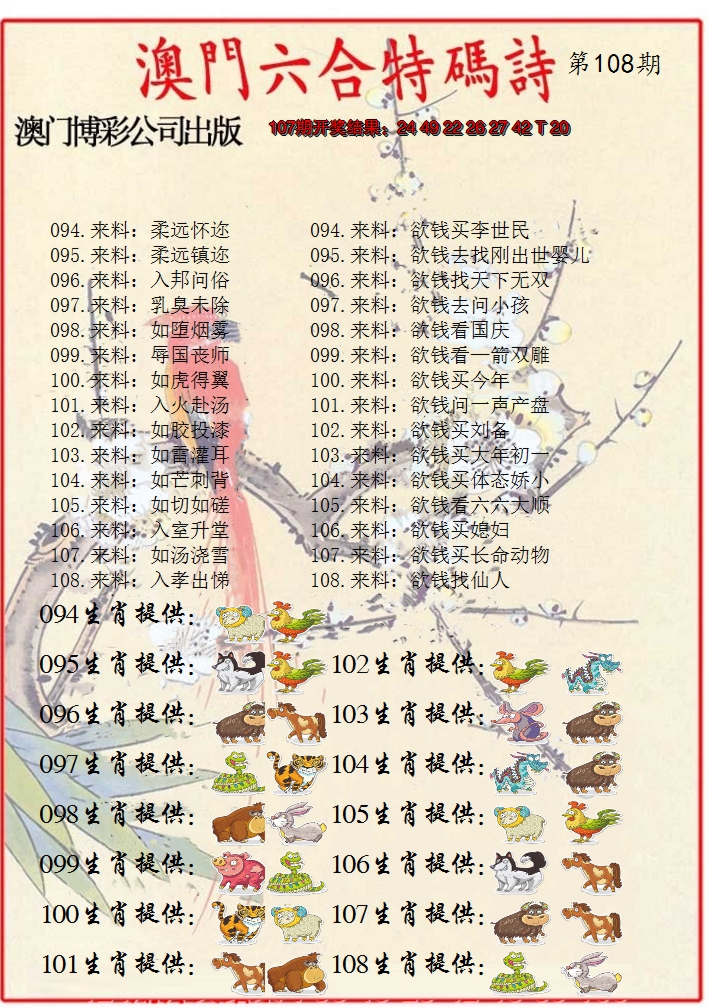 澳門六合特碼詩 第108期
澳门博彩公司出版 107期开奖结果：24 49 22 26 27 42 T 20
094.来料：柔远怀迩 094.来料：欲钱买李世民
095.来料：柔远镇迩 095.来料：欲钱去找刚出世婴儿
096.来料：入邦问俗 096.来料：欲钱找天下无双
097.来料：乳臭未除 097.来料：欲钱去问小孩
098.来料：如堕烟雾 098.来料：欲钱看国庆
099.来料：辱国丧师 099.来料：欲钱看一箭双雕
100.来料：如虎得翼 100.来料：欲钱买今年
101.来料：入火赴汤 101.来料：欲钱问一声产盘
102.来料：如胶投漆 102.来料：欲钱买刘备
103.来料：如雷灌耳 103.来料：欲钱买大年初一
104.来料：如芒刺背 104.来料：欲钱买体态娇小
105.来料：如切如磋 105.来料：欲钱看六六大顺
106.来料：入室升堂 106.来料：欲钱买媳妇
107.来料：如汤浇雪 107.来料：欲钱买长命动物
108.来料：入孝出悌 108.来料：欲钱找仙人
094生肖提供：
095生肖提供： 102生肖提供：
096生肖提供： 103生肖提供：
097生肖提供： 104生肖提供：
098生肖提供： 105生肖提供：
099生肖提供： 106生肖提供：
100生肖提供： 107生肖提供：
101生肖提供： 108生肖提供：